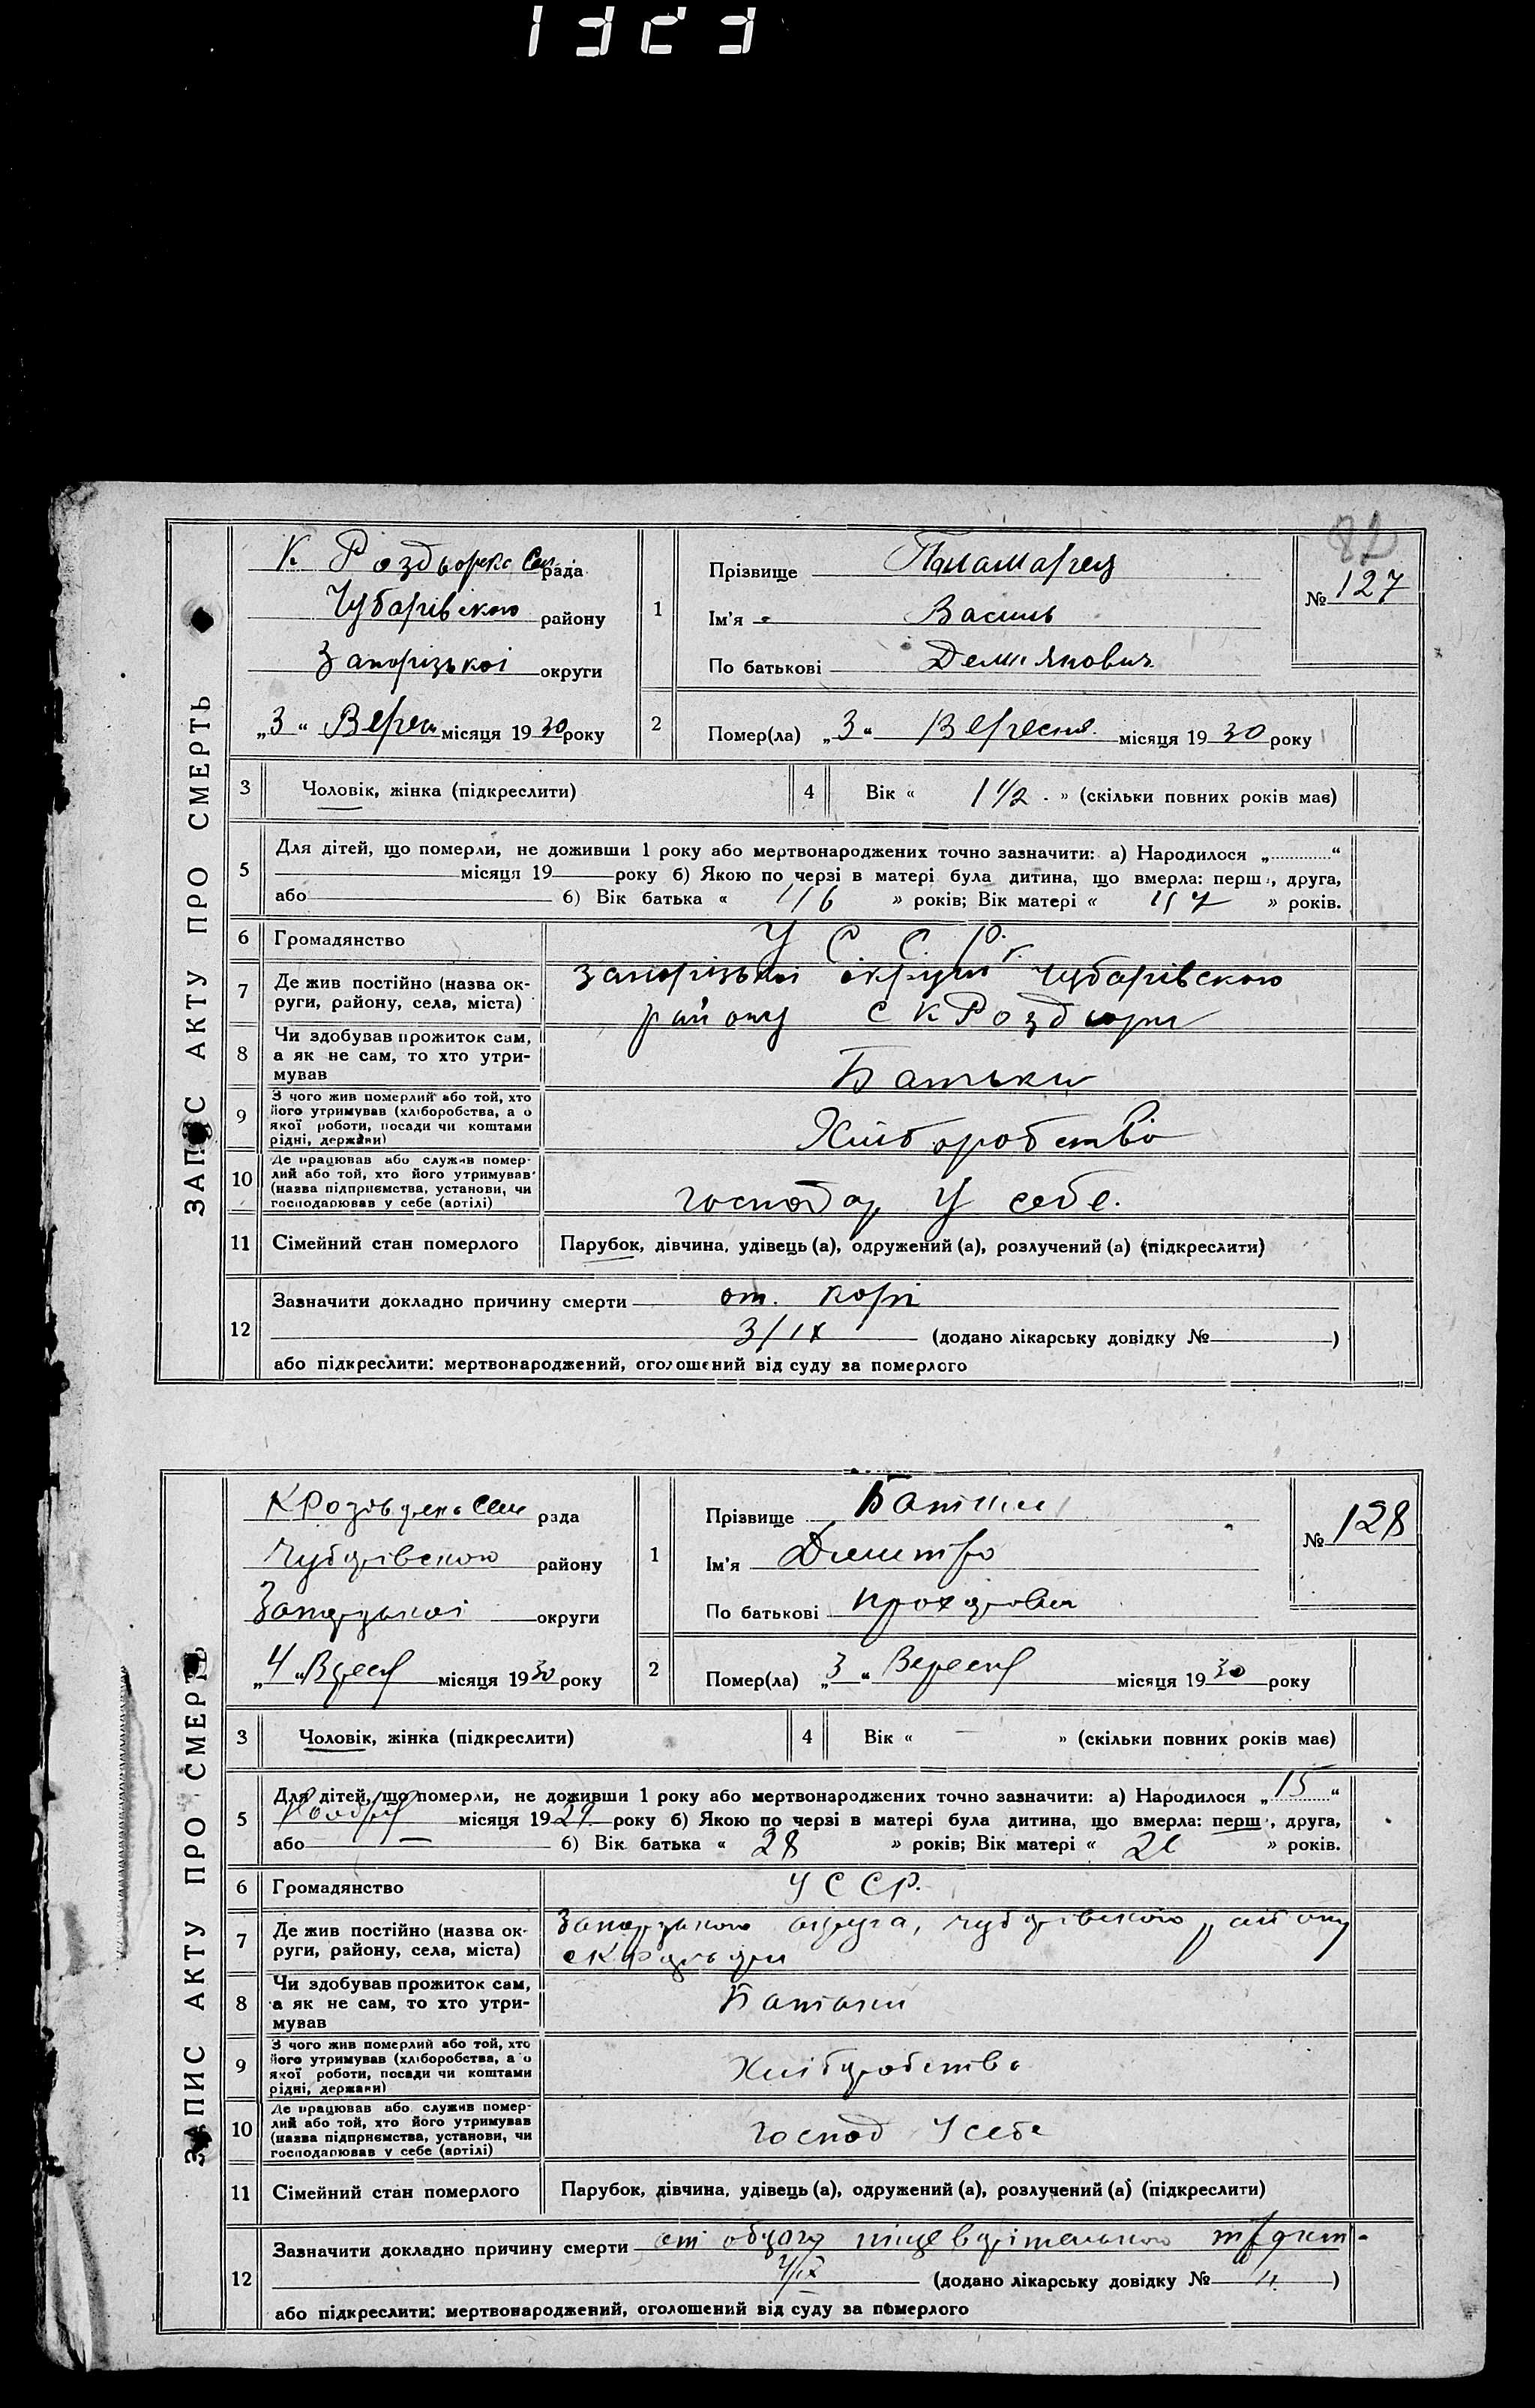 1323
82
ЗАПИС АКТУ ПРО СМЕРТЬ
К Роздьорска Сел рада
Чубарівского району
Запорізькоі округи
„3“ Верес місяця 1930 року
1
Прізвище
Ім'я Василь
По батькові Демянович
№ 127
2
Помер(ла) „3“ Вересня місяця 1930 року
3 Чоловік, жінка (підкреслити)
4 Вік « 1 1/2 » (скільки повних років має)
5 Для дітей, що померли, не доживши 1 року або мертвонароджених точно зазначити: а) Народилося „ “
місяця 19 року б) Якою по черзі в матері була дитина, що вмерла: перш , друга,
або б) Вік батька « » років; Вік матері « » років.
6 Громадянство У С С Р.
7 Де жив постійно (назва округи, району, села, міста) Запорізькоі округи Чубарівского
району с К Роздори
8 Чи здобував прожиток сам,
а як не сам, то хто утри-
мував Батьки
9 З чого жив померлий або той, хто
його утримував (хліборобства, а о
якої роботи, посади чи коштами
рідні, держави) Хліборобство
10 Де працював або служив помер-
лий або той, хто його утримував
(назва підприємства, установи, чи
господарював у себе (артілі) господар У себе.
11 Сімейний стан померлого Парубок, дівчина, удівець (а), одружений (а), розлучений (а) (підкреслити)
12 Зазначити докладно причину смерти от. корі
3/IX (додано лікарську довідку № )
або підкреслити: мертвонароджений, оголошений від суду за померлого
ЗАПИС АКТУ ПРО СМЕРТЬ
рада
Чубарівского району
Запорізькоі округи
„4“ Вересня місяця 1930 року
1
Прізвище
Ім'я Дмитро
По батькові Прохорович
№ 128
2
Помер(ла) „3“ Вересня місяця 1930 року
3 Чоловік, жінка (підкреслити)
4 Вік « — » (скільки повних років має)
5 Для дітей, що померли, не доживши 1 року або мертвонароджених точно зазначити: а) Народилося „15“
Ноября місяця 1929 року б) Якою по черзі в матері була дитина, що вмерла: перш , друга,
або — б) Вік батька « 28 » років; Вік матері « » років.
6 Громадянство У С С Р.
7 Де жив постійно (назва округи, району, села, міста) Запорізького округа, Чубарівского району
8 Чи здобував прожиток сам,
а як не сам, то хто утри-
мував Батьки
9 З чого жив померлий або той, хто
його утримував (хліборобства, а о
якої роботи, посади чи коштами
рідні, держави) Хліборобство
10 Де працював або служив помер-
лий або той, хто його утримував
(назва підприємства, установи, чи
господарював у себе (артілі) Господ У себе
11 Сімейний стан померлого Парубок, дівчина, удівець (а), одружений (а), розлучений (а) (підкреслити)
12 Зазначити докладно причину смерти
4/IX (додано лікарську довідку № )
або підкреслити: мертвонароджений, оголошений від суду за померлого